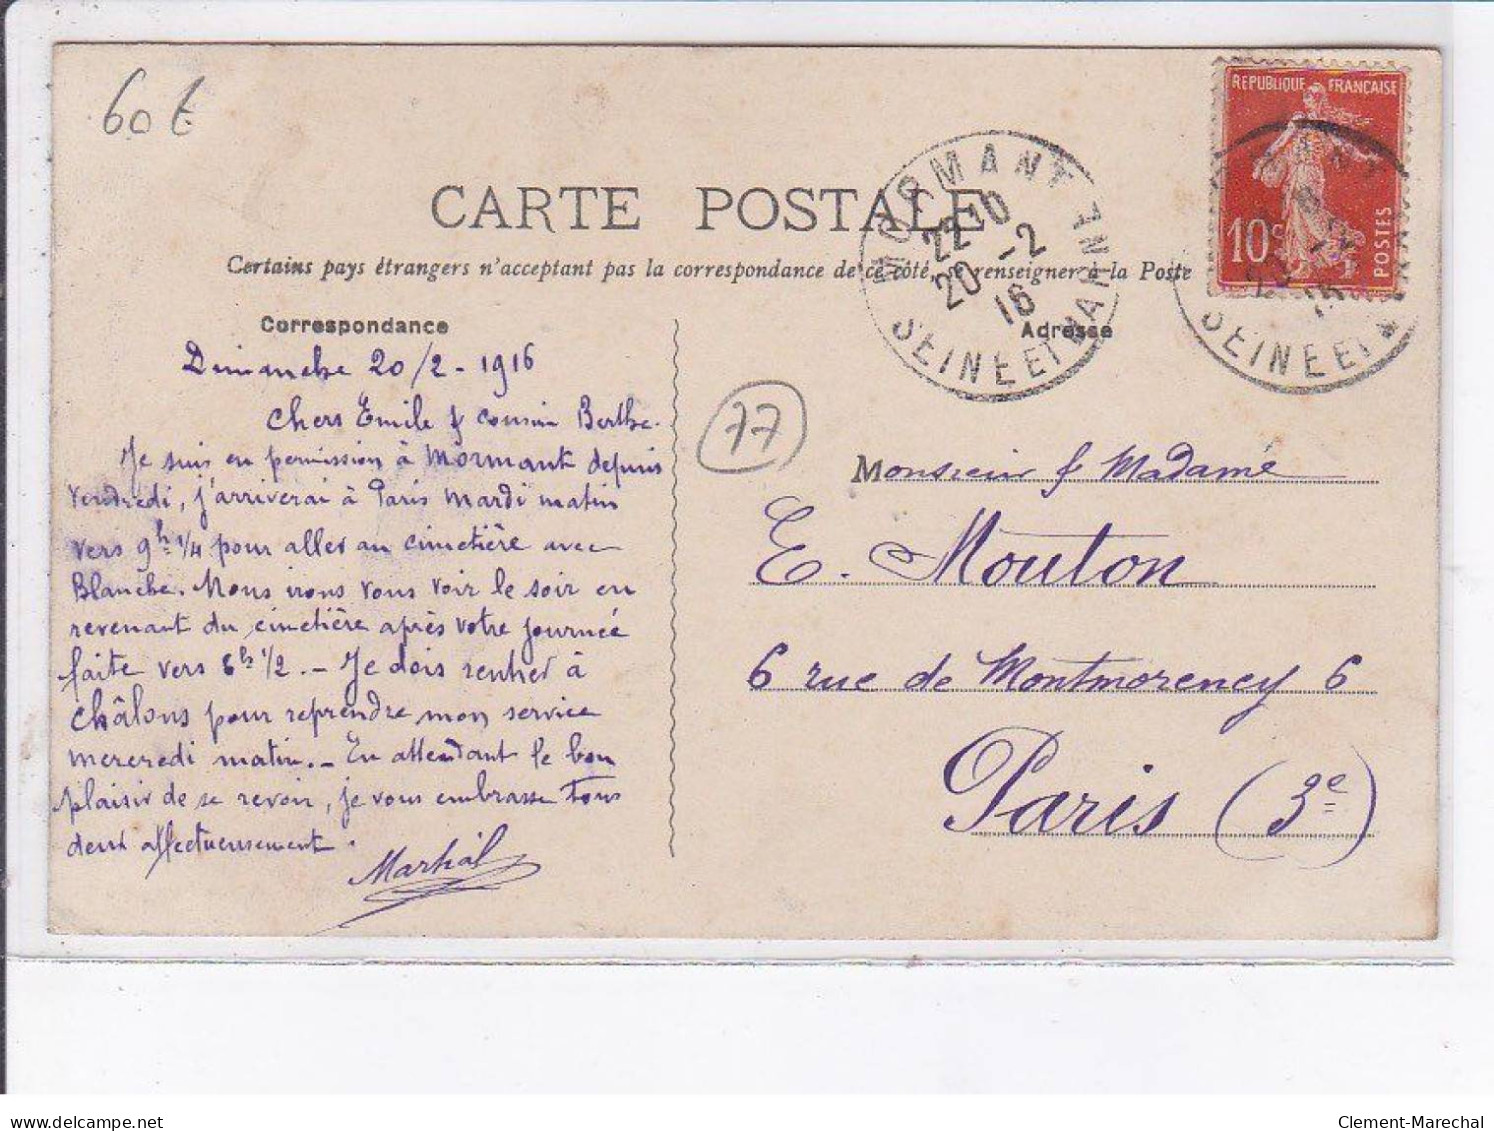 60 €
REPUBLIQUE FRANÇAISE
10c
POSTES
CARTE POSTALE
Certains pays étrangers n'acceptent pas la correspondance de ce côté, se renseigner à la Poste
MORMANT
22 10
20 -2
16
SEINE ET MARNE
SEINE ET M
Correspondance
Adresse
Dimanche 20/2 - 1916
Chers Emile & cousin Berthe.
Je suis en permission à Mormant depuis
vendredi, j'arriverai à Paris mardi matin
vers 9h 1/4 pour aller au cimetière avec
Blanche. Nous irons vous voir le soir en
revenant du cimetière après votre journée
faite vers 6h 1/2. - Je dois rentrer à
Châlons pour reprendre mon service
mercredi matin. - En attendant le bon
plaisir de se revoir, je vous embrasse tous
deux affectueusement.
Martial
77
Monsieur & Madame
E. Mouton
6 rue de Montmorency 6
Paris (3e)
delcampe.net
Clement-Marechal